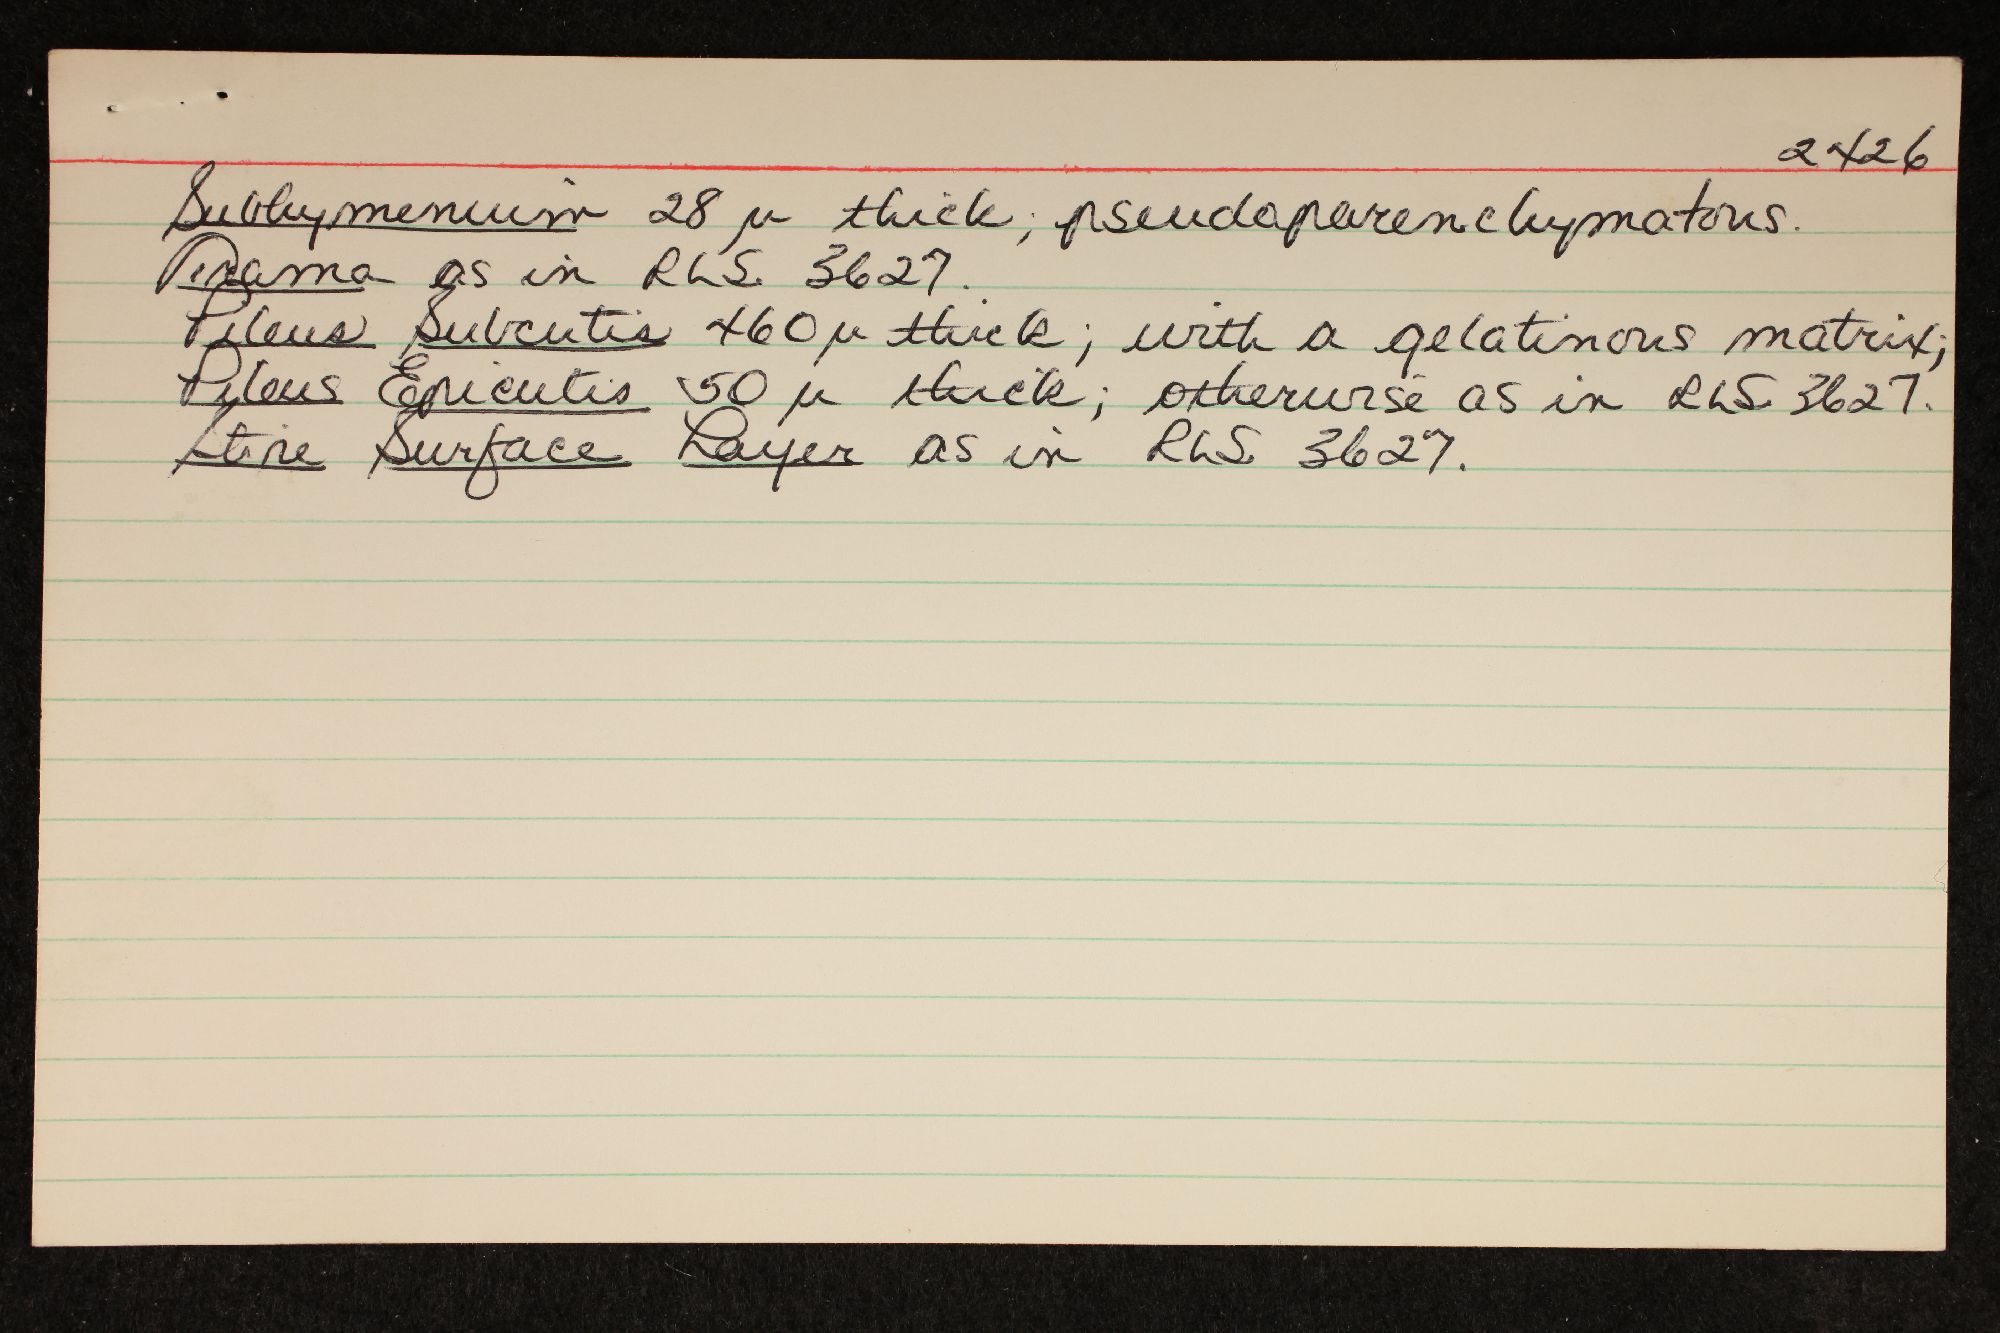 2426
Subhymenium 28 µ thick; pseudoparenchymatous.
Trama as in RLS. 3627.
Pileus Subcutis 460 µ thick; with a gelatinous matrix;
Pileus Epicutis 50 µ thick; otherwise as in RLS. 3627.
Stipe Surface Layer as in RLS. 3627.